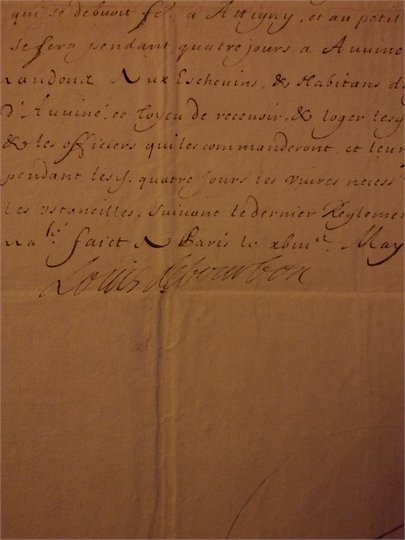 qui se debuoit fe. a Attigny, et au petit
se fera pendant quatre jours a Auuine
Landoux Aux Escheuins, & habitans d
D'Auuiné, et Toyeu de receuoir, & loger lesq
& les officiers qui les commanderont, et leur
pendant lesq. quatre jours les viures necess
Les vstancilles, suiuant le dernier Reglemen
Ma.té faict A Paris le xbm.e May
Louis de bourbon